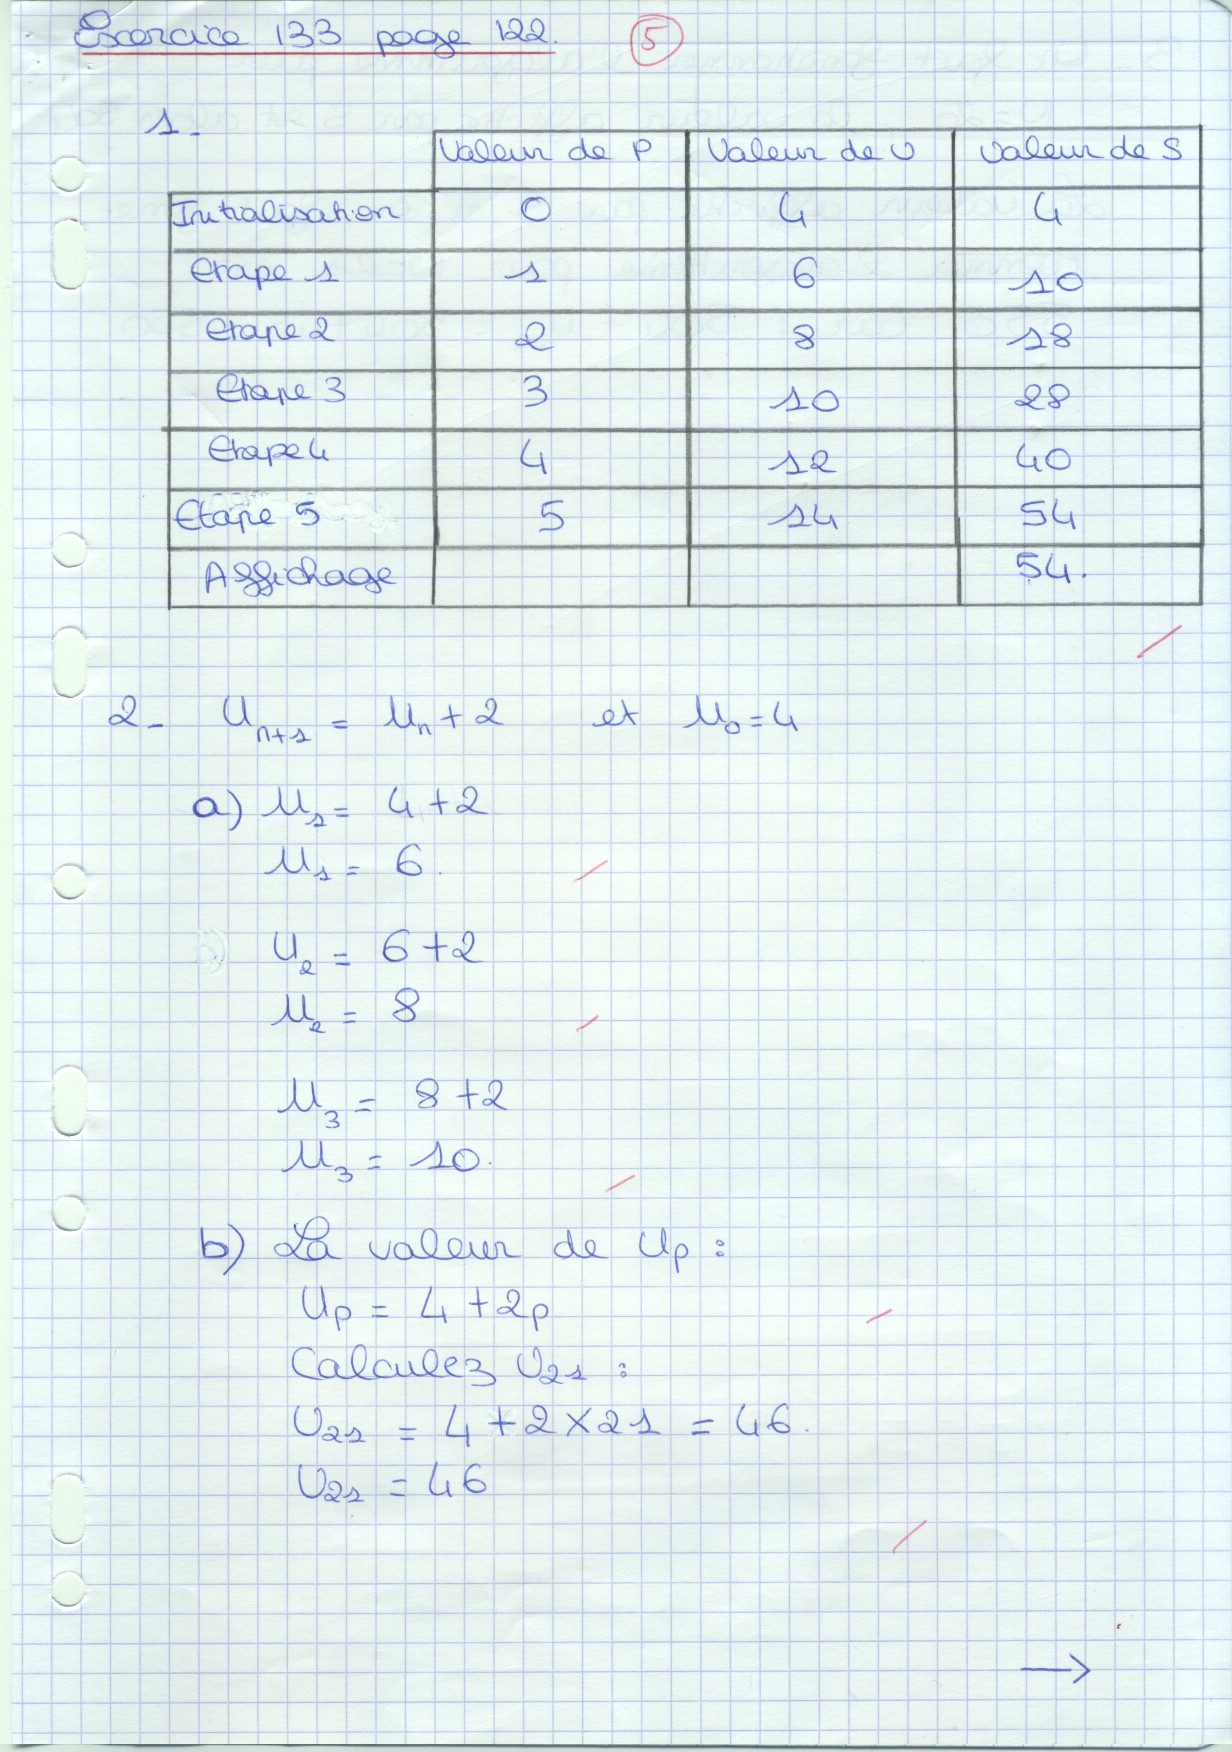 Exercice 133 page 122. 5
1-
Valeur de P Valeur de U Valeur de S
Initialisation 0 4 4
Etape 1 1 6 10
Etape 2 2 8 18
Etape 3 3 10 28
Etape 4 4 12 40
Etape 5 5 14 54
Affichage 54.
2- Un+1 = Un + 2 et U0 = 4
a) U1 = 4 + 2
U1 = 6.
U2 = 6 + 2
U2 = 8
U3 = 8 + 2
U3 = 10.
b) La valeur de Up :
Up = 4 + 2p
Calculez U21 :
U21 = 4 + 2 × 21 = 46.
U21 = 46
→